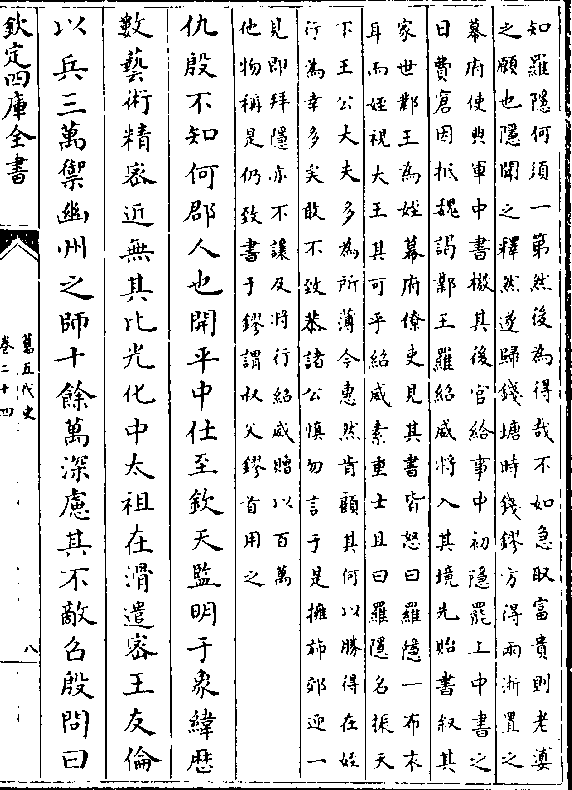 知羅隱何須一第然後為得哉不如急取富貴則老婆
之願也隱聞之釋然遂歸錢塘時錢鏐方得兩浙置之
幕府使典軍中書檄其後官給事中初隱罷上中書之
日費窘因抵魏謁鄴王羅紹威將入其境先貽書叙其
家世鄴王為姪幕府僚吏見其書皆怒曰羅隱一布衣
耳而姪視大王其可乎紹威素重士且曰羅隱名振天
下王公大夫多為所薄今惠然肯顧其何以勝得在姪
行為幸多矣敢不致恭諸公慎勿言于是擁斾郊迎一
見即拜隱亦不讓及將行紹威贈以百萬
他物稱是仍致書于鏐謂叔父鏐首用之
仇殷不知何郡人也開平中仕至欽天監明于象緯歴
數藝術精宻近無其比光化中太祖在滑遣宻王友倫
以兵三萬禦幽州之師十餘萬深慮其不敵召殷問曰
欽定四庫全書
舊五代史
卷二十四
八